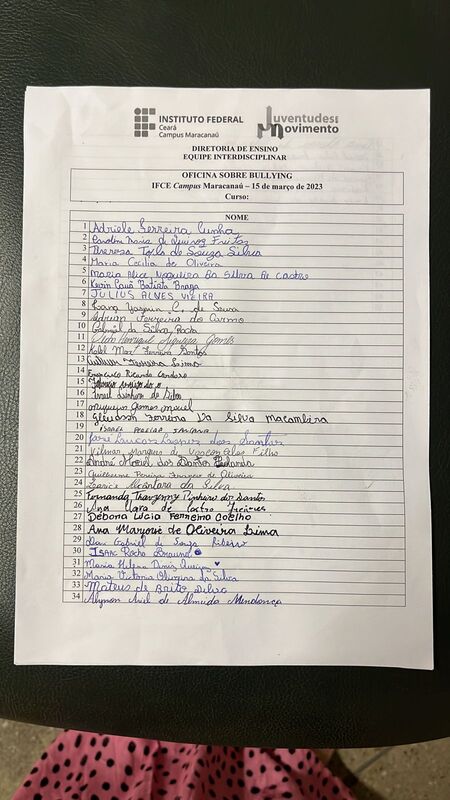 INSTITUTO FEDERAL
Ceará
Campus Maracanaú
Juventudes em
Movimento
DIRETORIA DE ENSINO
EQUIPE INTERDISCIPLINAR
OFICINA SOBRE BULLYING
IFCE Campus Maracanaú – 15 de março de 2023
Curso:
NOME
1 Adriele Ferreira Cunha
2 Caroline de Queiroz Freitas
3 Theresa de Souza Silva
4 Maria Cecilia de Oliveira
5 Maria Alice Nogueira Da Silva De Castro
6 Kevin Cauã Batista Braga
7 JULIUS ALVES VIEIRA
8 C. de Sousa
9 Adrian Ferreira do Carmo
10 Gabriel da Silva Rocha
11 Henrique Siqueira Gomes
12 Ferreira Santos
13 Ferreira Lima
14 Francisco Ricardo Cardoso
15
16 da Silva
17 Gomes Maciel
18 Gleidson Ferreira Da Silva Macambira
19 ISABEL PEREIRA
20 José Lucas Lopes dos Santos
21 Vilmar Marques de Vasconcelos Filho
22 André dos Santos
23 Guilherme Pereira de Oliveira
24 Alcântara da Silva
25 Fernanda Pinheiro dos Santos
26 Ana Clara de Castro
27 Debora Lúcia Ferreira Coelho
28 Ana de Oliveira Lima
29 Gabriel de Souza Ribeiro
30 Isaac Rocha
31 Maria Helena Diniz
32 Maria Victoria Oliveira da Silva
33 Mateus de Brito Silva
34 Ariel de Almeida Mendonça